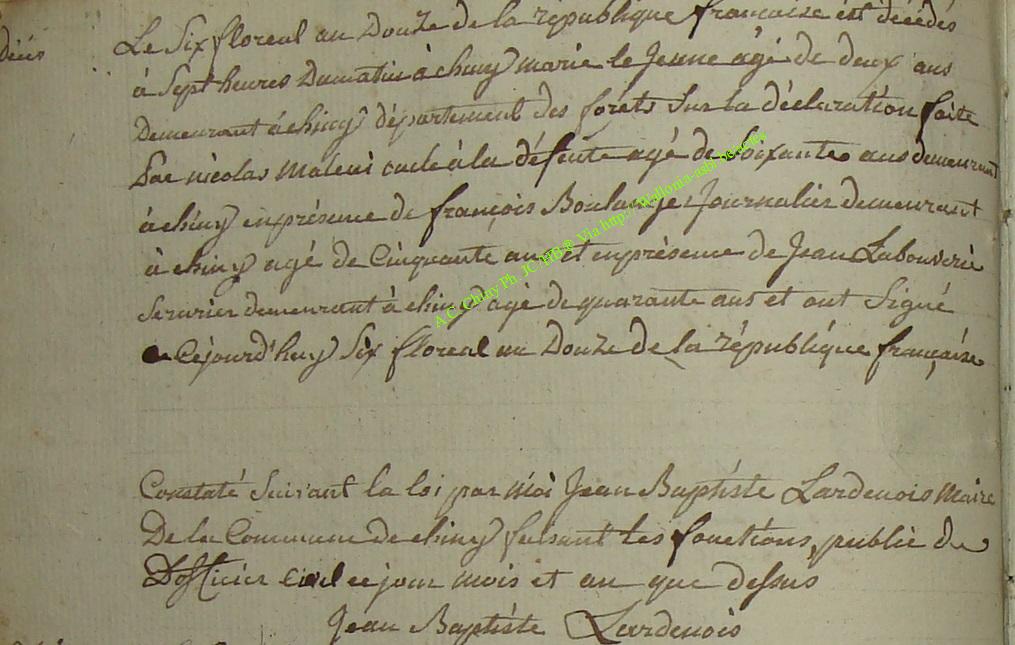 décès
Le Six floreal an Douze de la république francaise est décédés
à Sept heures Dumatin à chiny marie le Jeune âgé de deux ans
Demeurant à chiny département des forêts Sur la déclaration faite
Par nicolas oncle à la défunte agé de Soixante ans demeurant
à chiny enprésence de françois Boulanger Journalier demeurant
à chiny agé de Cinquante ans et enprésence de Jean Labouverie
Serurier demeurant à chiny agé de quarante ans et ont Signé
Cejourd'huy Six floreal an Douze de la république française
Constaté Suivant la loi par moi Jean Baptiste Lardenois Maire
De la Commune de chiny faisant les fonctions, public du
D'officier Civil ce jour mois et an que dessus
Jean Baptiste Lardenois
A.C. Chiny Ph. JC Via http://wallonia-asbl